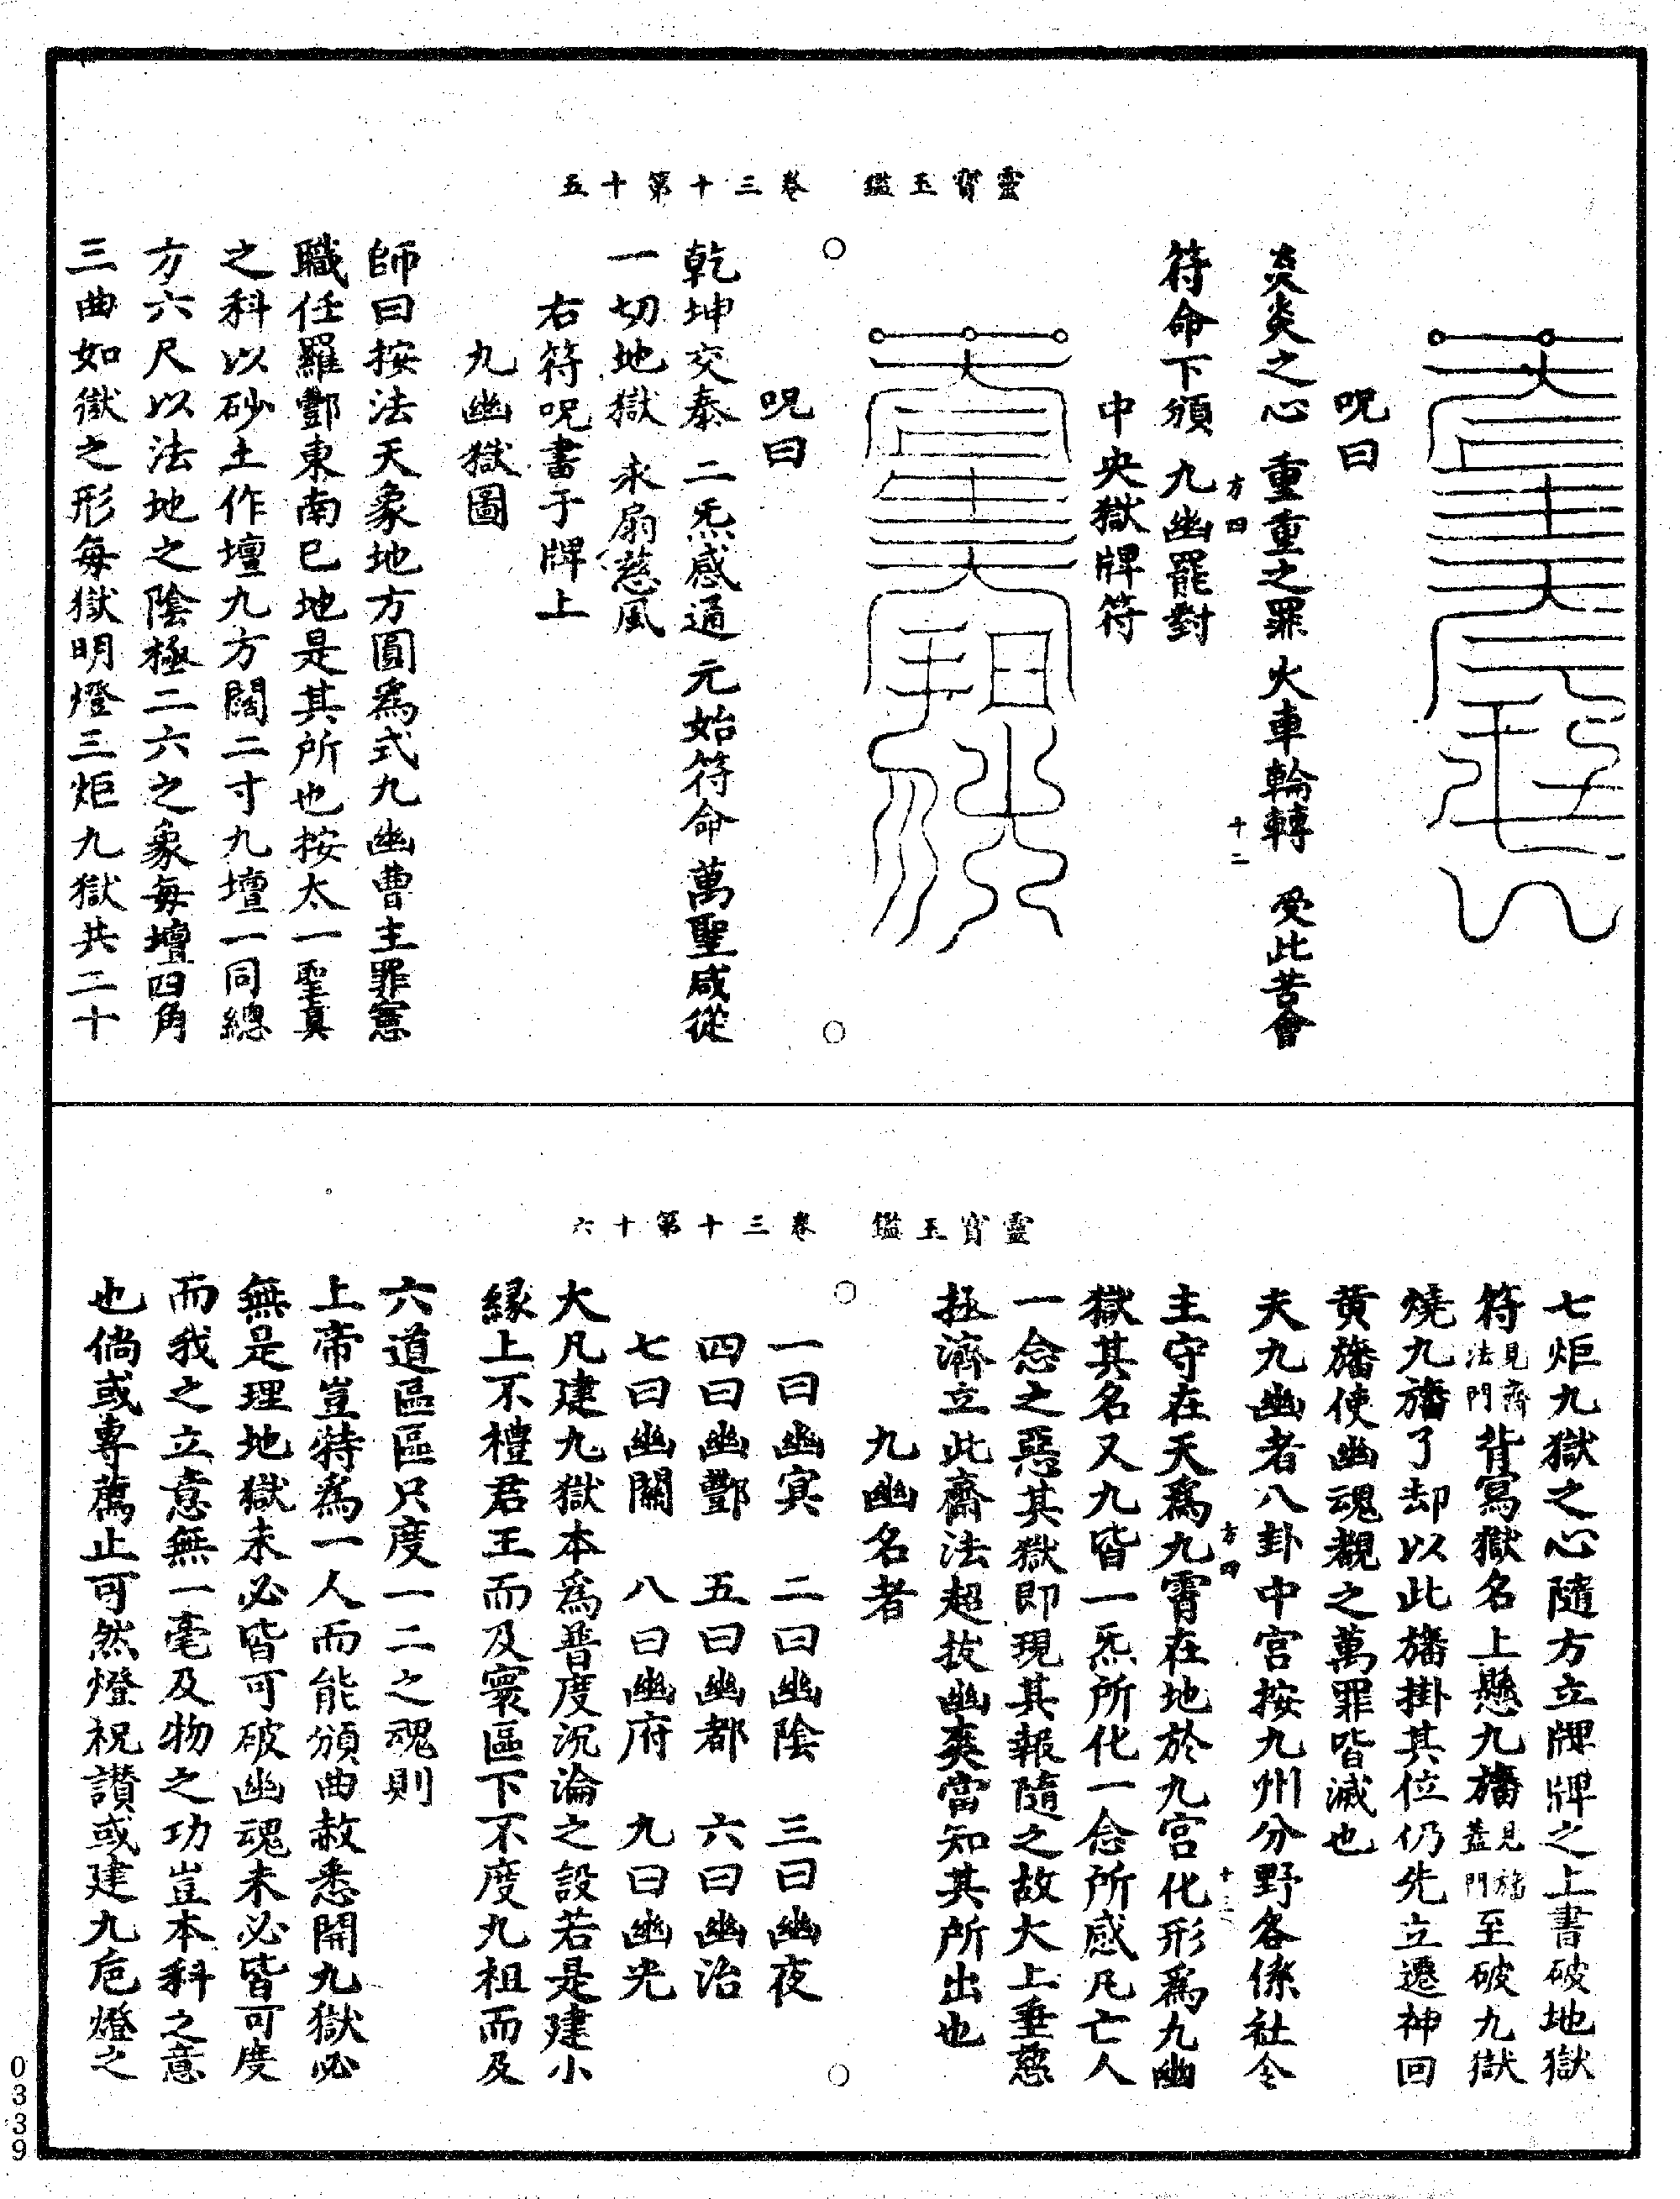 靈寶玉鑑　卷三十第十五
呪曰
炎炎之心　重重之罪　火車輪轉　受此苦會
方四　十二
符命下頒　九幽罷對
中央獄牌符
呪曰
乾坤交泰　二炁感通　元始符命　萬聖咸從
一切地獄　永扇慈風
右符呪書于牌上
九幽獄圖
師曰按法天象地方圓爲式九幽曹主罪憲
職任羅酆東南巳地是其所也按太一聖真
之科以砂土作壇九方闊二寸九壇一同總
方六尺以法地之陰極二六之象每壇四角
三曲如獄之形每獄明燈三炬九獄共二十
靈寶玉鑑　卷三十第十六
七炬九獄之心隨方立牌牌之上書破地獄
符見齋法門背寫獄名上懸九旛見旛蓋門至破九獄
燒九旛了却以此旛掛其位仍先立遷神回
黃旛使幽魂覩之萬罪皆滅也
夫九幽者八卦中宮按九州分野各係社令
方四　十三
主守在天爲九霄在地於九宮化形爲九幽
獄其名又九皆一炁所化一念所感凡亡人
一念之惡其獄即現其報隨之故大上垂慈
拯濟立此齋法超拔幽爽當知其所出也
九幽名者
一曰幽冥　二曰幽陰　三曰幽夜
四曰幽酆　五曰幽都　六曰幽治
七曰幽關　八曰幽府　九曰幽光
大凡建九獄本爲普度沉淪之設若是建小
縁上不禮君王而及寰區下不度九祖而及
六道區區只度一二之魂則
上帝豈特爲一人而能頒曲赦悉開九獄必
無是理地獄未必皆可破幽魂未必皆可度
而我之立意無一毫及物之功豈本科之意
也倘或專薦止可然燈祝讃或建九巵燈之
0339